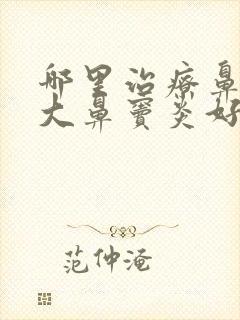 哪里治疗鼻
大鼻窦炎好
范仲淹